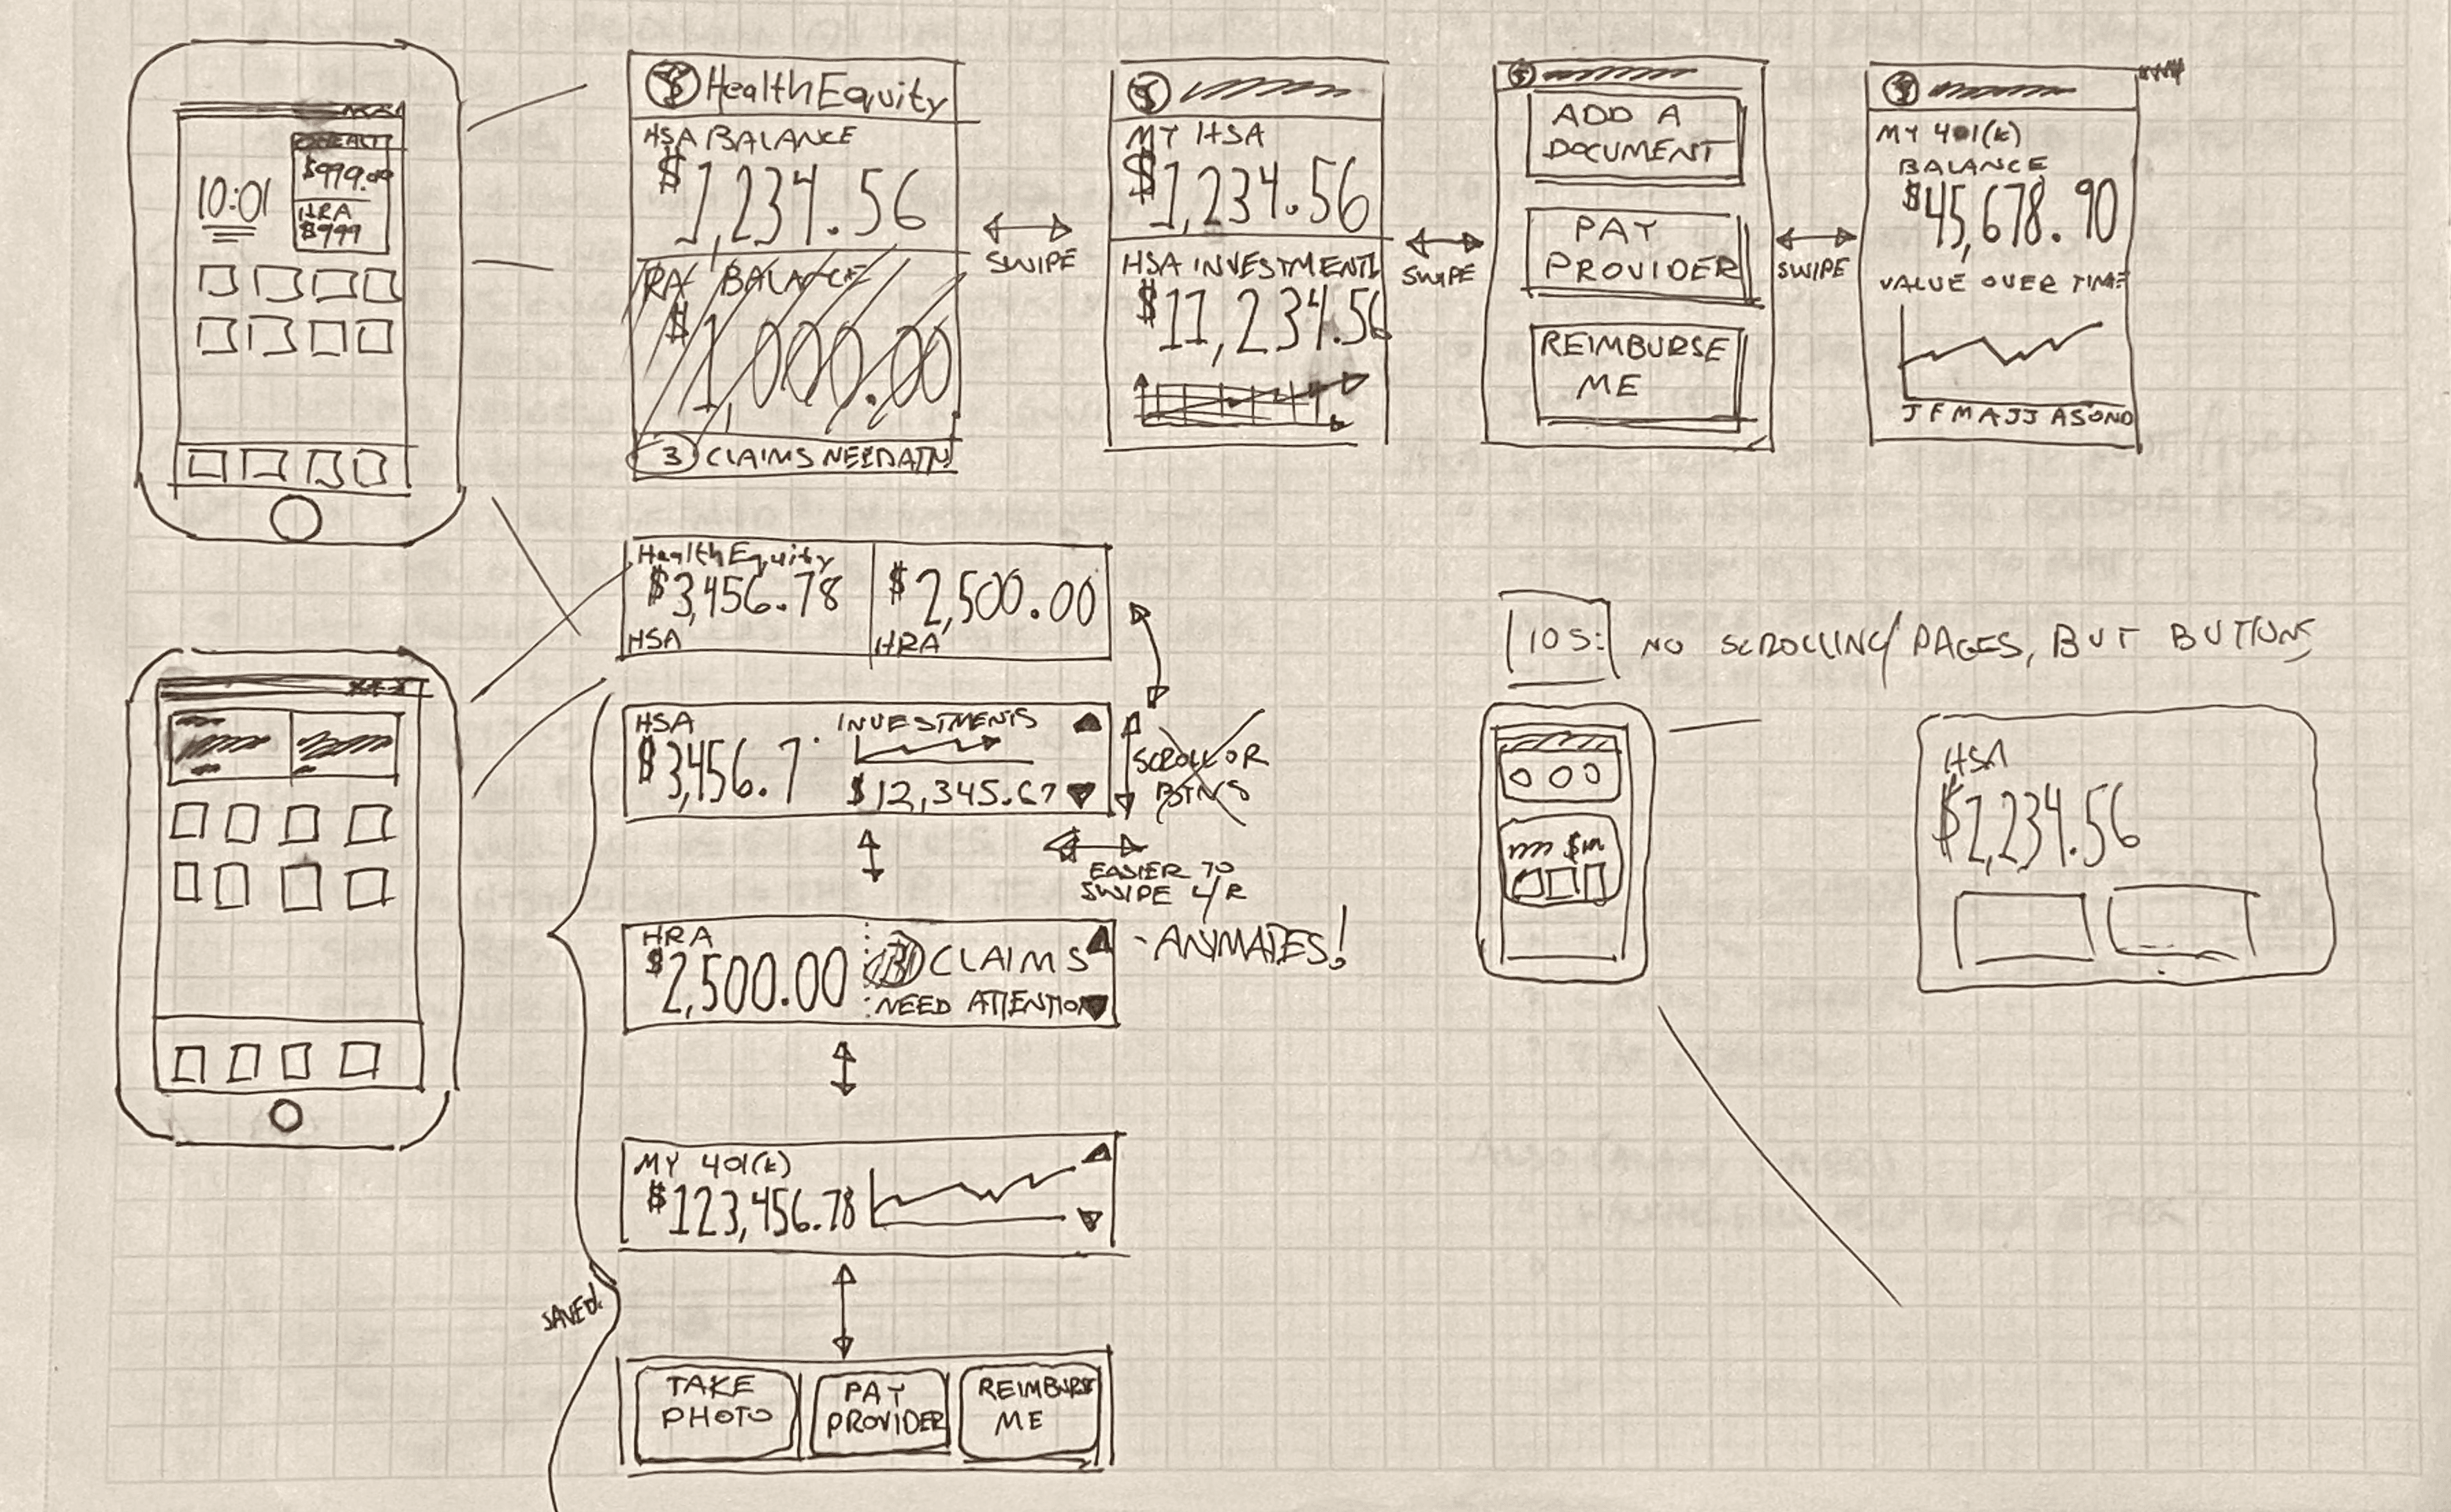 10:01
$999.00
HRA
$999
HealthEquity
HSA BALANCE
$1,234.56
RA BALANCE
$1,000.00
3 CLAIMS NEED ATN
SWIPE
MY HSA
$1,234.56
HSA INVESTMENT
$11,234.56
SWIPE
ADD A
DOCUMENT
PAY
PROVIDER
REIMBURSE
ME
SWIPE
MY 401(k)
BALANCE
$45,678.90
VALUE OVER TIME
J F M A J J A S O N D
HealthEquity
$3,456.78
HSA
$2,500.00
HRA
HSA
$3,456.7
INVESTMENTS
$12,345.67
SCROLL OR
BTNS
EASIER TO
SWIPE L/R
HRA
$2,500.00
3 CLAIMS
NEED ATTENTION
- ANIMATES!
MY 401(k)
$123,456.78
SAVED!
TAKE
PHOTO
PAY
PROVIDER
REIMBURSE
ME
IOS: NO SCROLLING/PAGES, BUT BUTTONS
HSA
$1,234.56